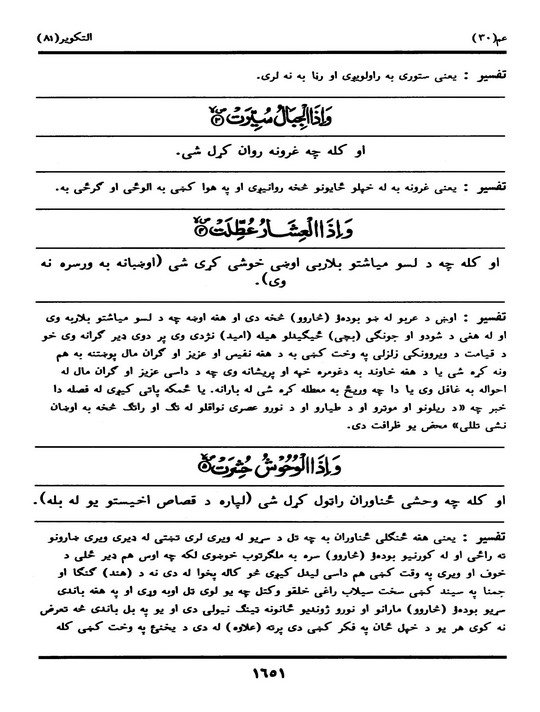 عم(٣٠) التکویر(٨١)
تفسیر : یعنی ستوری به راولویږی او رڼا به نه لری.
وَاِذَا الْجِبَالُ سُيِّرَتْ ۙ۝٣
او کله چه غرونه روان کړل شی.
تفسیر : یعنی غرونه به له خپلو ځایونو څخه روانیږی او په هوا کښی به الوځی او ګرځی به.
وَاِذَا الْعِشَارُ عُطِّلَتْ ۙ۝٤
او کله چه د لسو میاشتو بلاربی اوښی خوشی کړی شی (اوښبانه به ورسره نه
وی).
تفسیر : اوښ د عربو له ښو بوده‌ؤ (څاروو) څخه دی او هغه اوښه چه د لسو میاشتو بلاربه وی
او له هغی د شودو او جونګی (بچی) ځیګیدلو هیله (امید) نژدی وی پر دوی ډیر ګرانه وی خو
د قیامت د ویروونکی زلزلی په وخت کښی به د هغه نفیس او عزیز او ګران مال پوښتنه به هم
ونه کړه شی یا د هغه خاوند به دغومره خپه او پریشانه وی چه د داسی عزیز او ګران مال له
احواله به غافل وی یا دا چه وریځ به معطله کړه شی له بارانه. یا ځمکه پاتی کیږی له فصله دا
خبر چه «د ریلونو او موټرو او د طیارو او د نورو عصری نواقلو له تګ او راتګ څخه به اوښان
نشی تللی» محض یو ظرافت دی.
وَاِذَا الْوُحُوْشُ حُشِرَتْ ۙ۝٥
او کله چه وحشی ځناوران راټول کړل شی (لپاره د قصاص اخیستو یو له بله).
تفسیر : یعنی هغه ځنګلی ځناوران به چه تل د سړیو له ویری لری تښتی له ډیری ویری ښارونو
ته راځی او له کورنیو بوده‌ؤ (څاروو) سره به ملګرتوب خوښوی لکه چه اوس هم ډیر ځلی د
خوف او ویری په وقت کښی هم داسی لیدل کیږی څو کاله پخوا له دی نه د (هند) ګنګا او
جمنا په سیند کښی سخت سیلاب راغی خلقو وکتل چه یو لوی تل اوبه وړی او په هغه باندی
سړیو بوده‌ؤ (څاروو) مارانو او نورو ژوندیو ځانونه ټینګ نیولی دی او یو په بل باندی څه تعرض
نه کوی هر یو د خپل ځان په فکر کښی دی پرته (علاوه) له دی د یخنئ په وخت کښی کله
١٦٥١